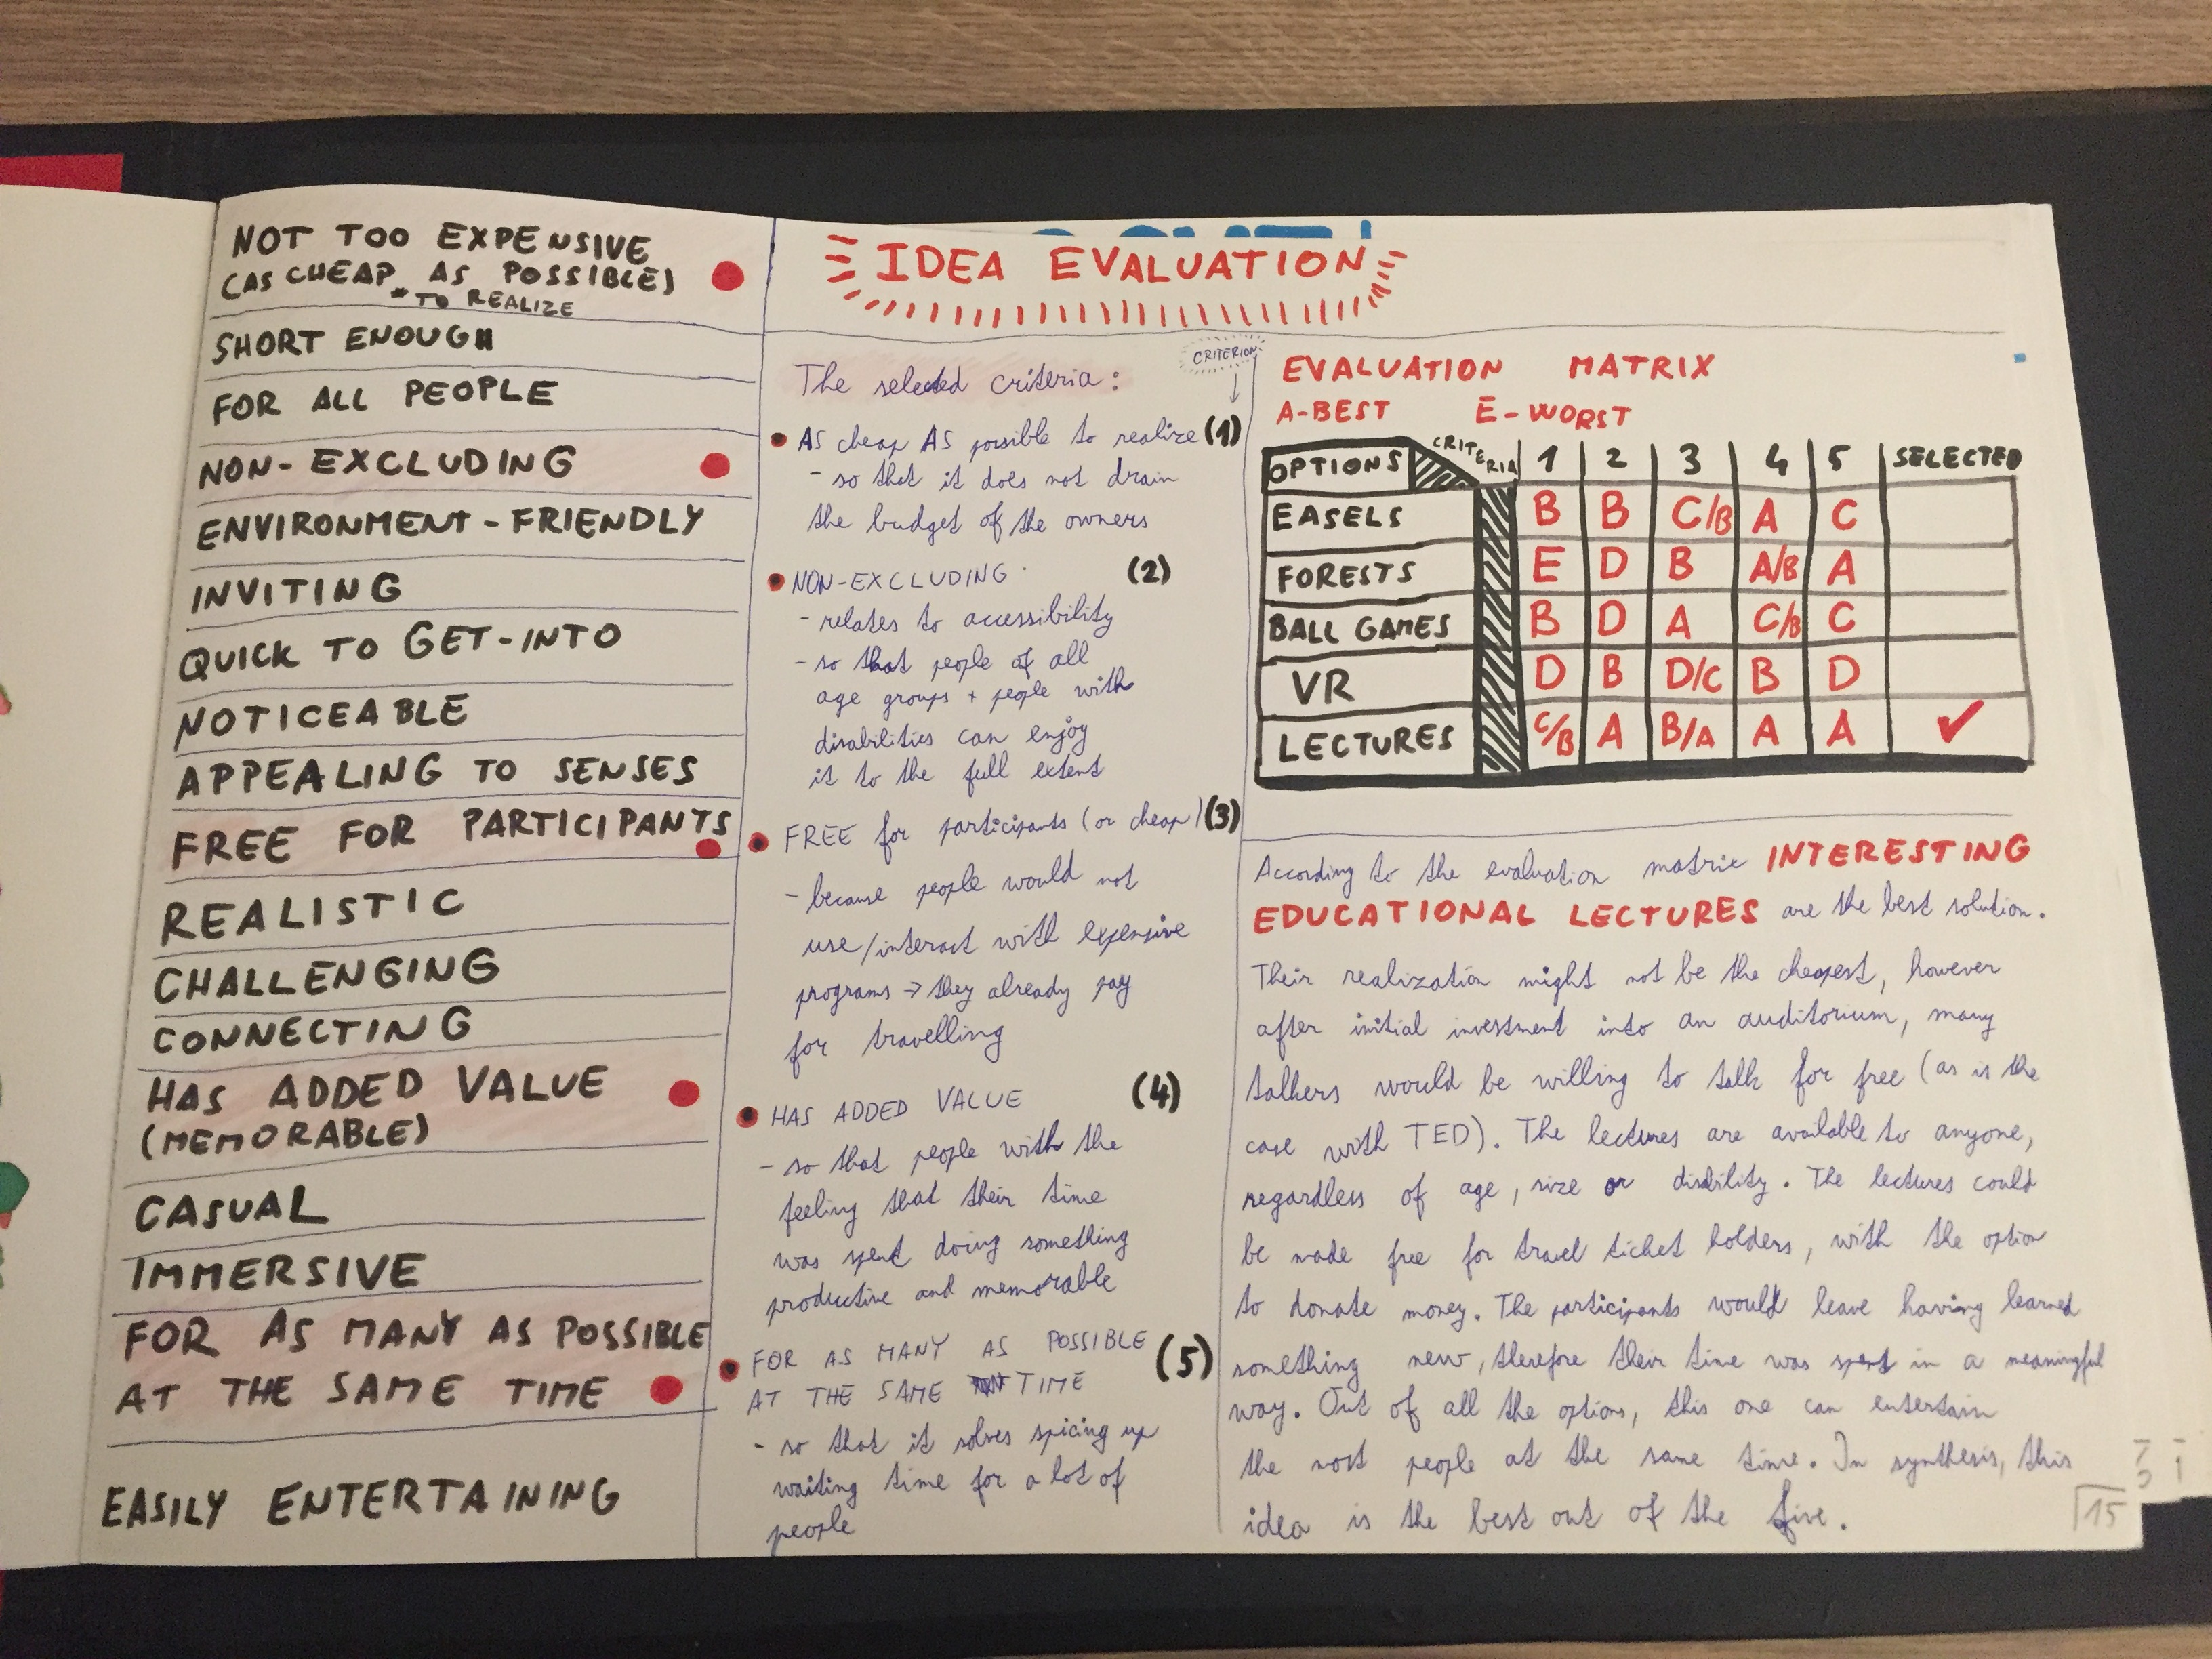 NOT TOO EXPENSIVE
(AS CHEAP * AS POSSIBLE)
* TO REALIZE
SHORT ENOUGH
FOR ALL PEOPLE
NON-EXCLUDING
ENVIRONMENT-FRIENDLY
INVITING
QUICK TO GET-INTO
NOTICEABLE
APPEALING TO SENSES
FREE FOR PARTICIPANTS
REALISTIC
CHALLENGING
CONNECTING
HAS ADDED VALUE
(MEMORABLE)
CASUAL
IMMERSIVE
FOR AS MANY AS POSSIBLE
AT THE SAME TIME
EASILY ENTERTAINING
IDEA EVALUATION
CRITERION
The selected criteria:
• AS cheap AS possible to realize (1)
- so that it does not drain
the budget of the owners
• NON-EXCLUDING (2)
- relates to accessibility
- so that people of all
age groups + people with
disabilities can enjoy
it to the full extent
• FREE for participants (or cheap) (3)
- because people would not
use/interact with expensive
programs → they already pay
for travelling
• HAS ADDED VALUE (4)
- so that people with the
feeling that their time
was spent doing something
productive and memorable
• FOR AS MANY AS POSSIBLE (5)
AT THE SAME TIME
- so that it solves spicing up
waiting time for a lot of
people
EVALUATION MATRIX
A-BEST E-WORST
OPTIONS CRITERIA 1 2 3 4 5 SELECTED
EASELS B B C/B A C
FORESTS E D B A/B A
BALL GAMES B D A C/B C
VR D B D/C B D
LECTURES C/B A B/A A A ✓
According to the evaluation matrix INTERESTING
EDUCATIONAL LECTURES are the best solution.
Their realization might not be the cheapest, however
after initial investment into an auditorium, many
talkers would be willing to talk for free (as is the
case with TED). The lectures are available to anyone,
regardless of age, size or disbility. The lectures could
be made free for travel ticket holders, with the option
to donate money. The participants would leave having learned
something new, therefore their time was spent in a meaningful
way. Out of all the options, this one can entertain
the most people at the same time. In synthesis, this
idea is the best out of the five.
15